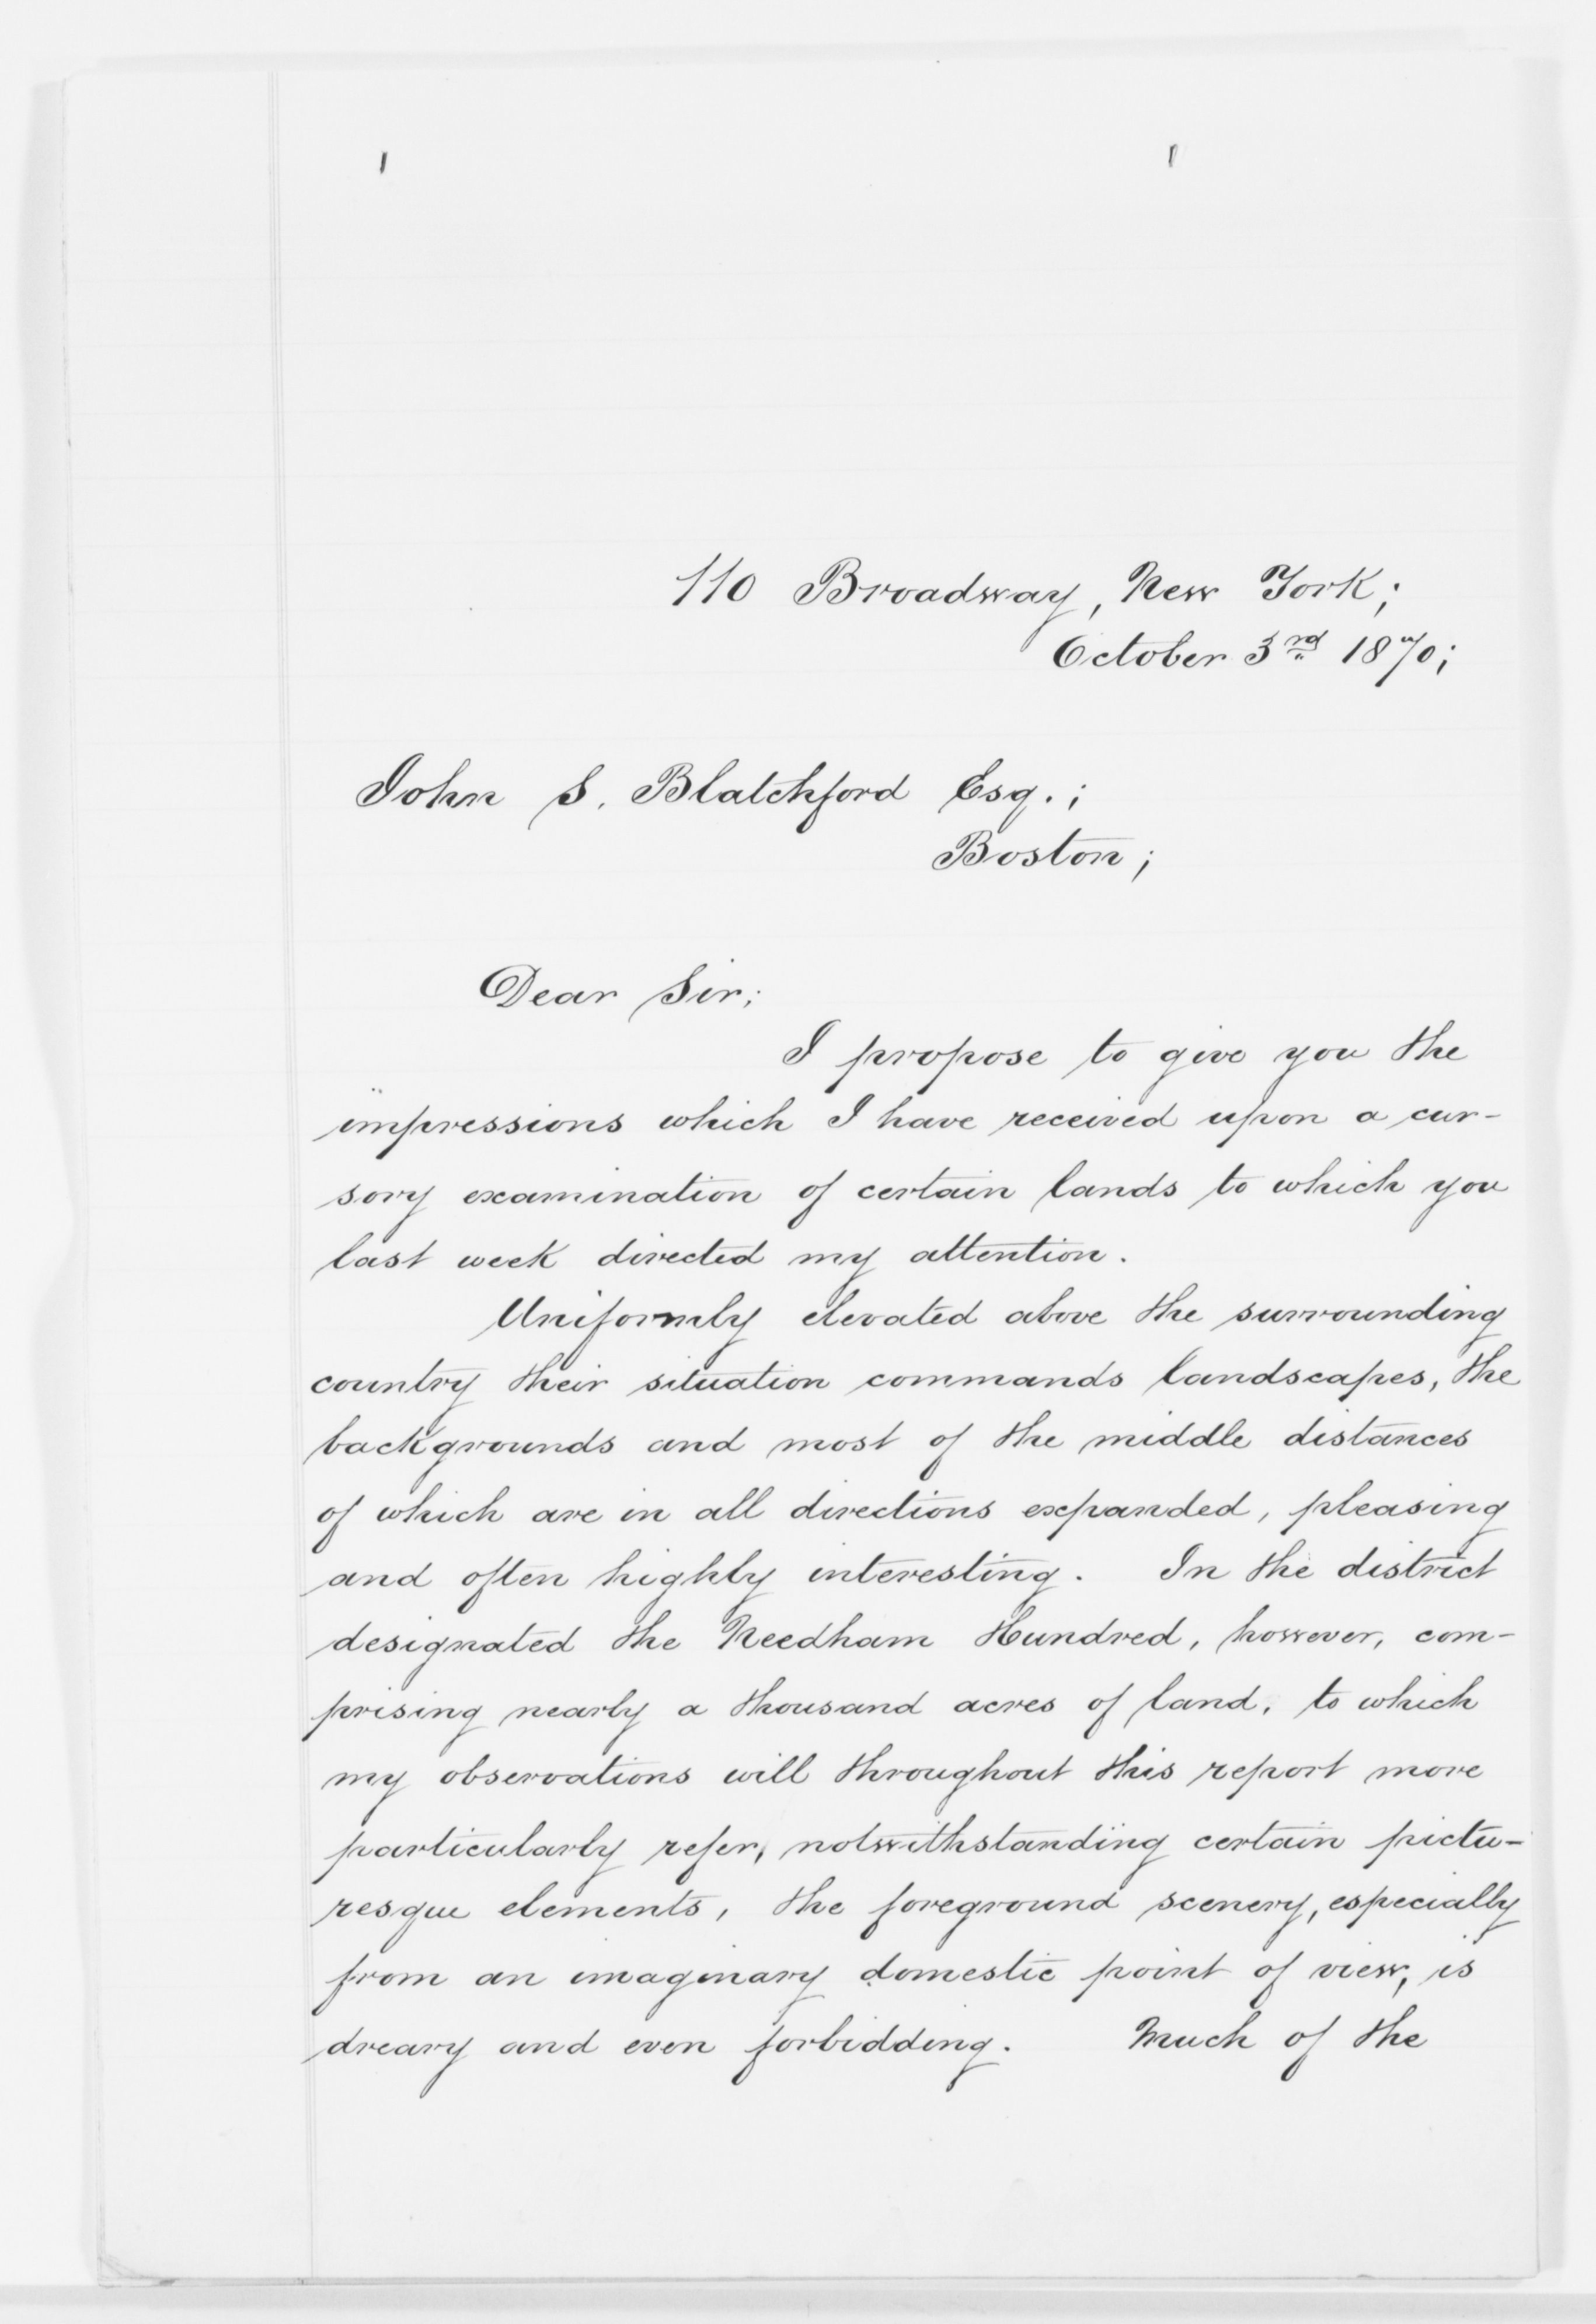 110 Broadway, New York;
October 3rd 1870;
John S. Blatchford Esq.;
Boston;
Dear Sir;
I propose to give you the
impressions which I have received upon a cur-
sory examination of certain lands to which you
last week directed my attention.
Uniformly elevated above the surrounding
country their situation commands landscapes, the
backgrounds and most of the middle distances
of which are in all directions expanded, pleasing
and often highly interesting. In the district
designated the Needham Hundred, however, com-
prising nearly a thousand acres of land, to which
my observations will throughout this report more
particularly refer, notwithstanding certain pictu-
resque elements, the foreground scenery, especially
from an imaginary domestic point of view, is
dreary and even forbidding. Much of the